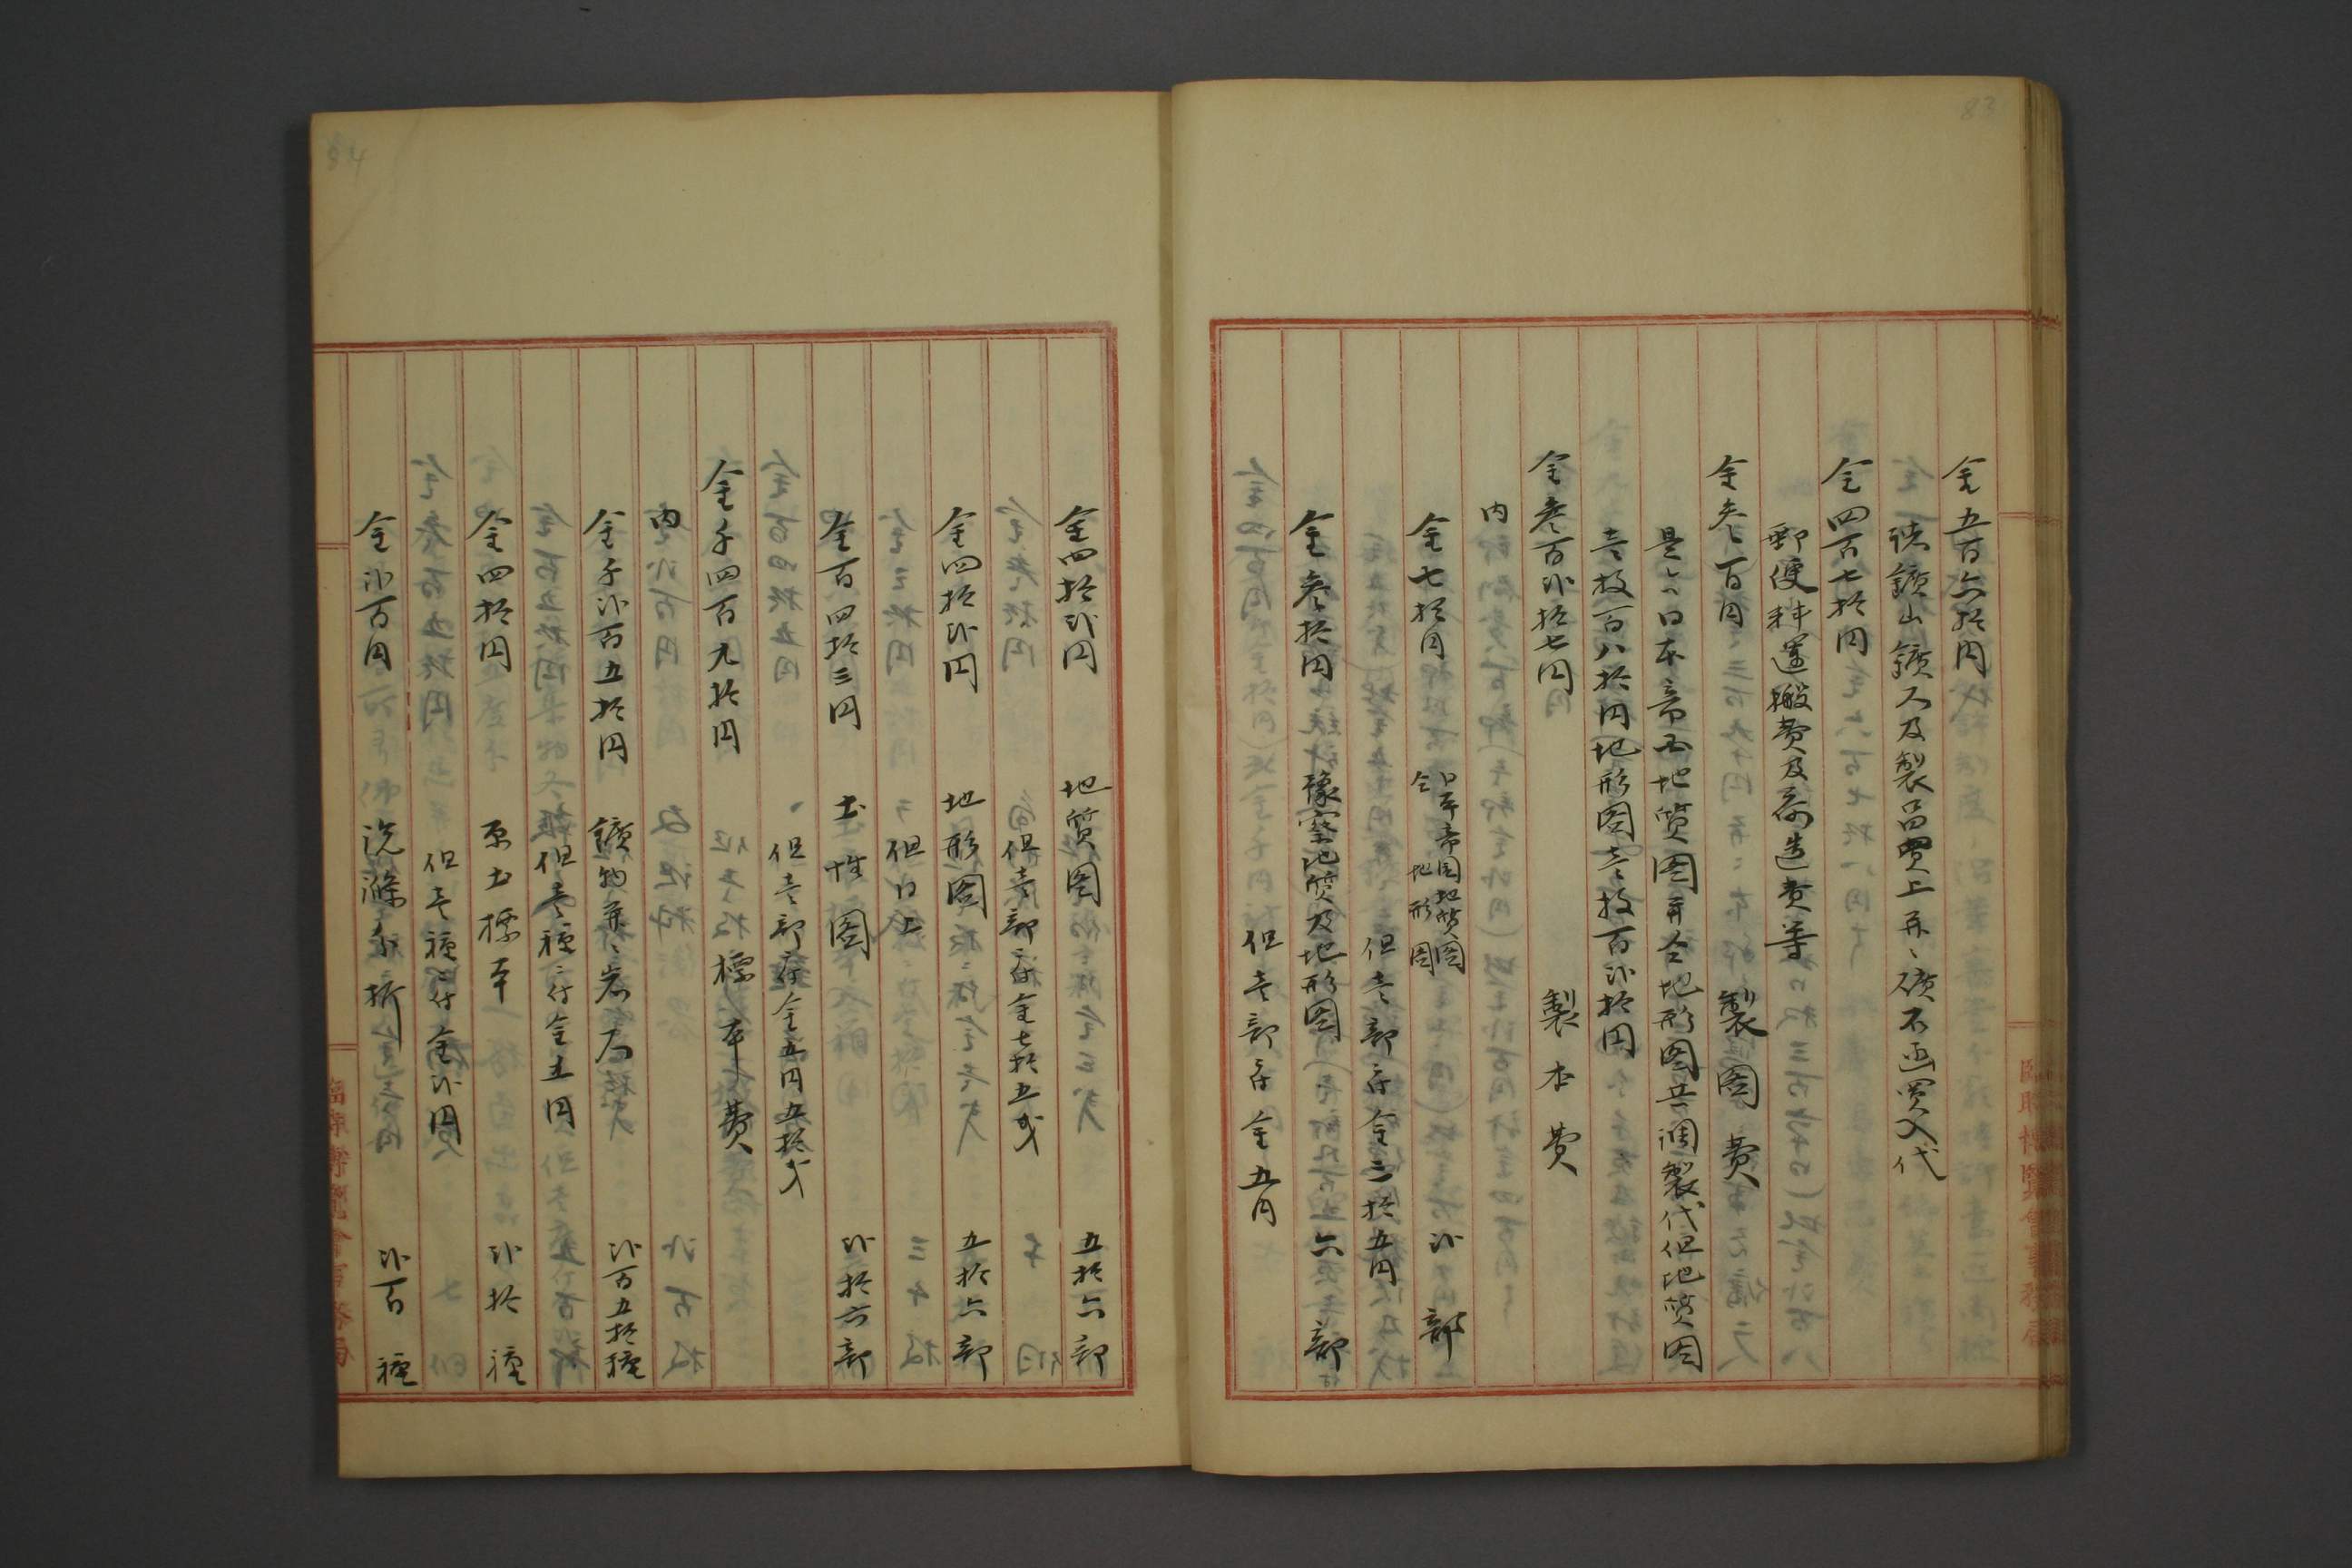 83
金五百六拾円
諸鑛山鑛入及製品買上并ニ礦石函買入代
金四百七拾円
郵便料運搬費及荷造費等
金参百円 製図費
是ハ日本帝国地質図并仝地形図共調製代但地質図
壱枚百八拾円地形図壱枚百弐拾円
金参百弐拾七円 製本費
内
金七拾円 日本帝国地質図 仝地形図 弐部
但壱部ニ付金三拾五円
金参拾円 豫察地質及地形図 六部
但壱部ニ付金五円
臨時博覧會事務局
84
金四拾弐円 地質図 五拾六部
但壱部ニ付金七拾五戔
金四拾弐円 地形図 五拾六部
但日上
金百四拾三円 土性図 弐拾六部
但壱部ニ付金五円五拾戔
金千四百九拾円 標本費
内
金千弐百五拾円 鑛物并ニ岩石 弐百五拾種
但壱種ニ付金五円
金四拾円 原土標本 弐拾種
但壱種ニ付金弐円
金弐百円 洗滌分析 弐百種
臨時博覧會事務局